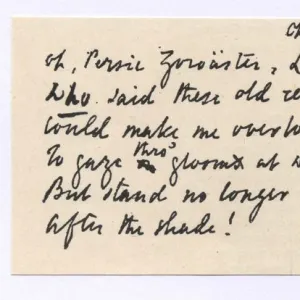 oh, Persic Zoroäster,
Who said these old
Could make me
To gaze thro' glooms at
But stand no longer
after the shade!